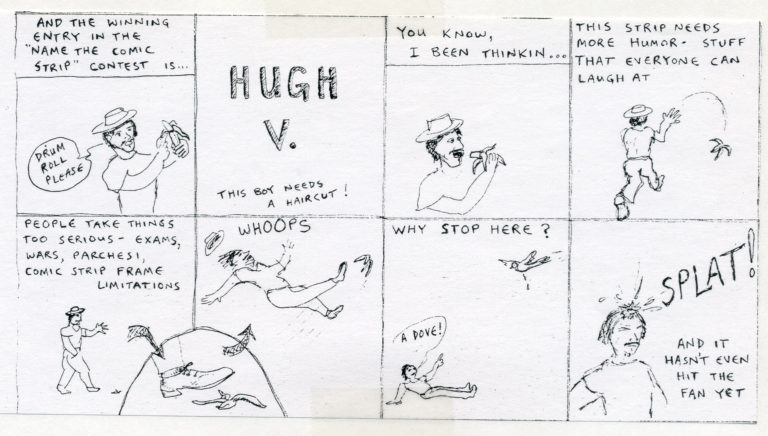 AND THE WINNING
ENTRY IN THE
"NAME THE COMIC
STRIP" CONTEST IS...
DRUM
ROLL
PLEASE
HUGH
V.
THIS BOY NEEDS
A HAIRCUT!
YOU KNOW,
I BEEN THINKIN...
THIS STRIP NEEDS
MORE HUMOR - STUFF
THAT EVERYONE CAN
LAUGH AT
PEOPLE TAKE THINGS
TOO SERIOUS - EXAMS,
WARS, PARCHESI,
COMIC STRIP FRAME
LIMITATIONS
WHOOPS
WHY STOP HERE?
A DOVE!
SPLAT!
AND IT
HASN'T EVEN
HIT THE
FAN YET